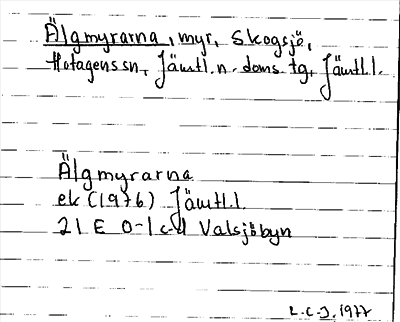 Älgmyrarna, myr, Skogsjö,
Hotagens sn, Jämtl. n. doms. tg, Jämtl.l.
Älgmyrarna
ek (1976) Jämtl.l.
21 E 0-1 c-d Valsjöbyn
L.C-J, 1977